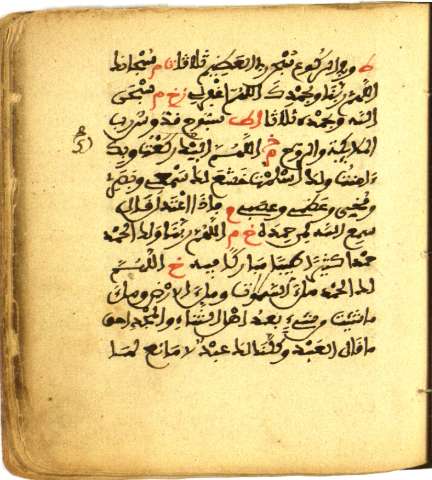 ط واذا ركع سبحن ربي العظيم ثلاثا م سبحانك
اللهم ربنا وبحمدك اللهم اغفر لي خ م سبحن
الله وبحمده ثلاثا ا ط سبوح قدوس رب
الملايكة والروح م اللهم لك ركعت وبك
ءامنت ولك اسلمت خشع لك سمعي وبصري
ومخي وعظمي وعصبي م واذا اعتدل قال
سمع الله لمن حمده خ م اللهم ربنا ولك الحمد
حمدا كثيرا طيبا مباركا فيه خ اللهم
لك الحمد ملء السموات وملء الارض وملء
ما شيت من شيء بعد اهل الثناء والمجد احق
ما قال العبد وكلنا لك عبد لا مانع لما